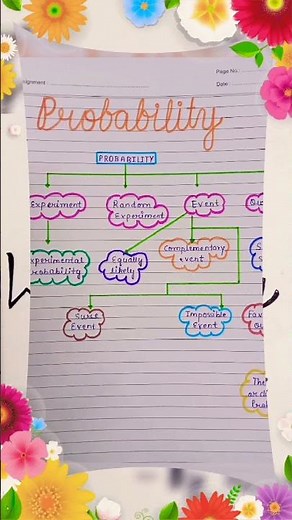 signment
Page No.:
Date
Probability
PROBABILITY
Experiment
Random
Experiment
Event
Experimental
Probability
Equally
likely
Complementary
event
Sure
Event
Impossible
Event